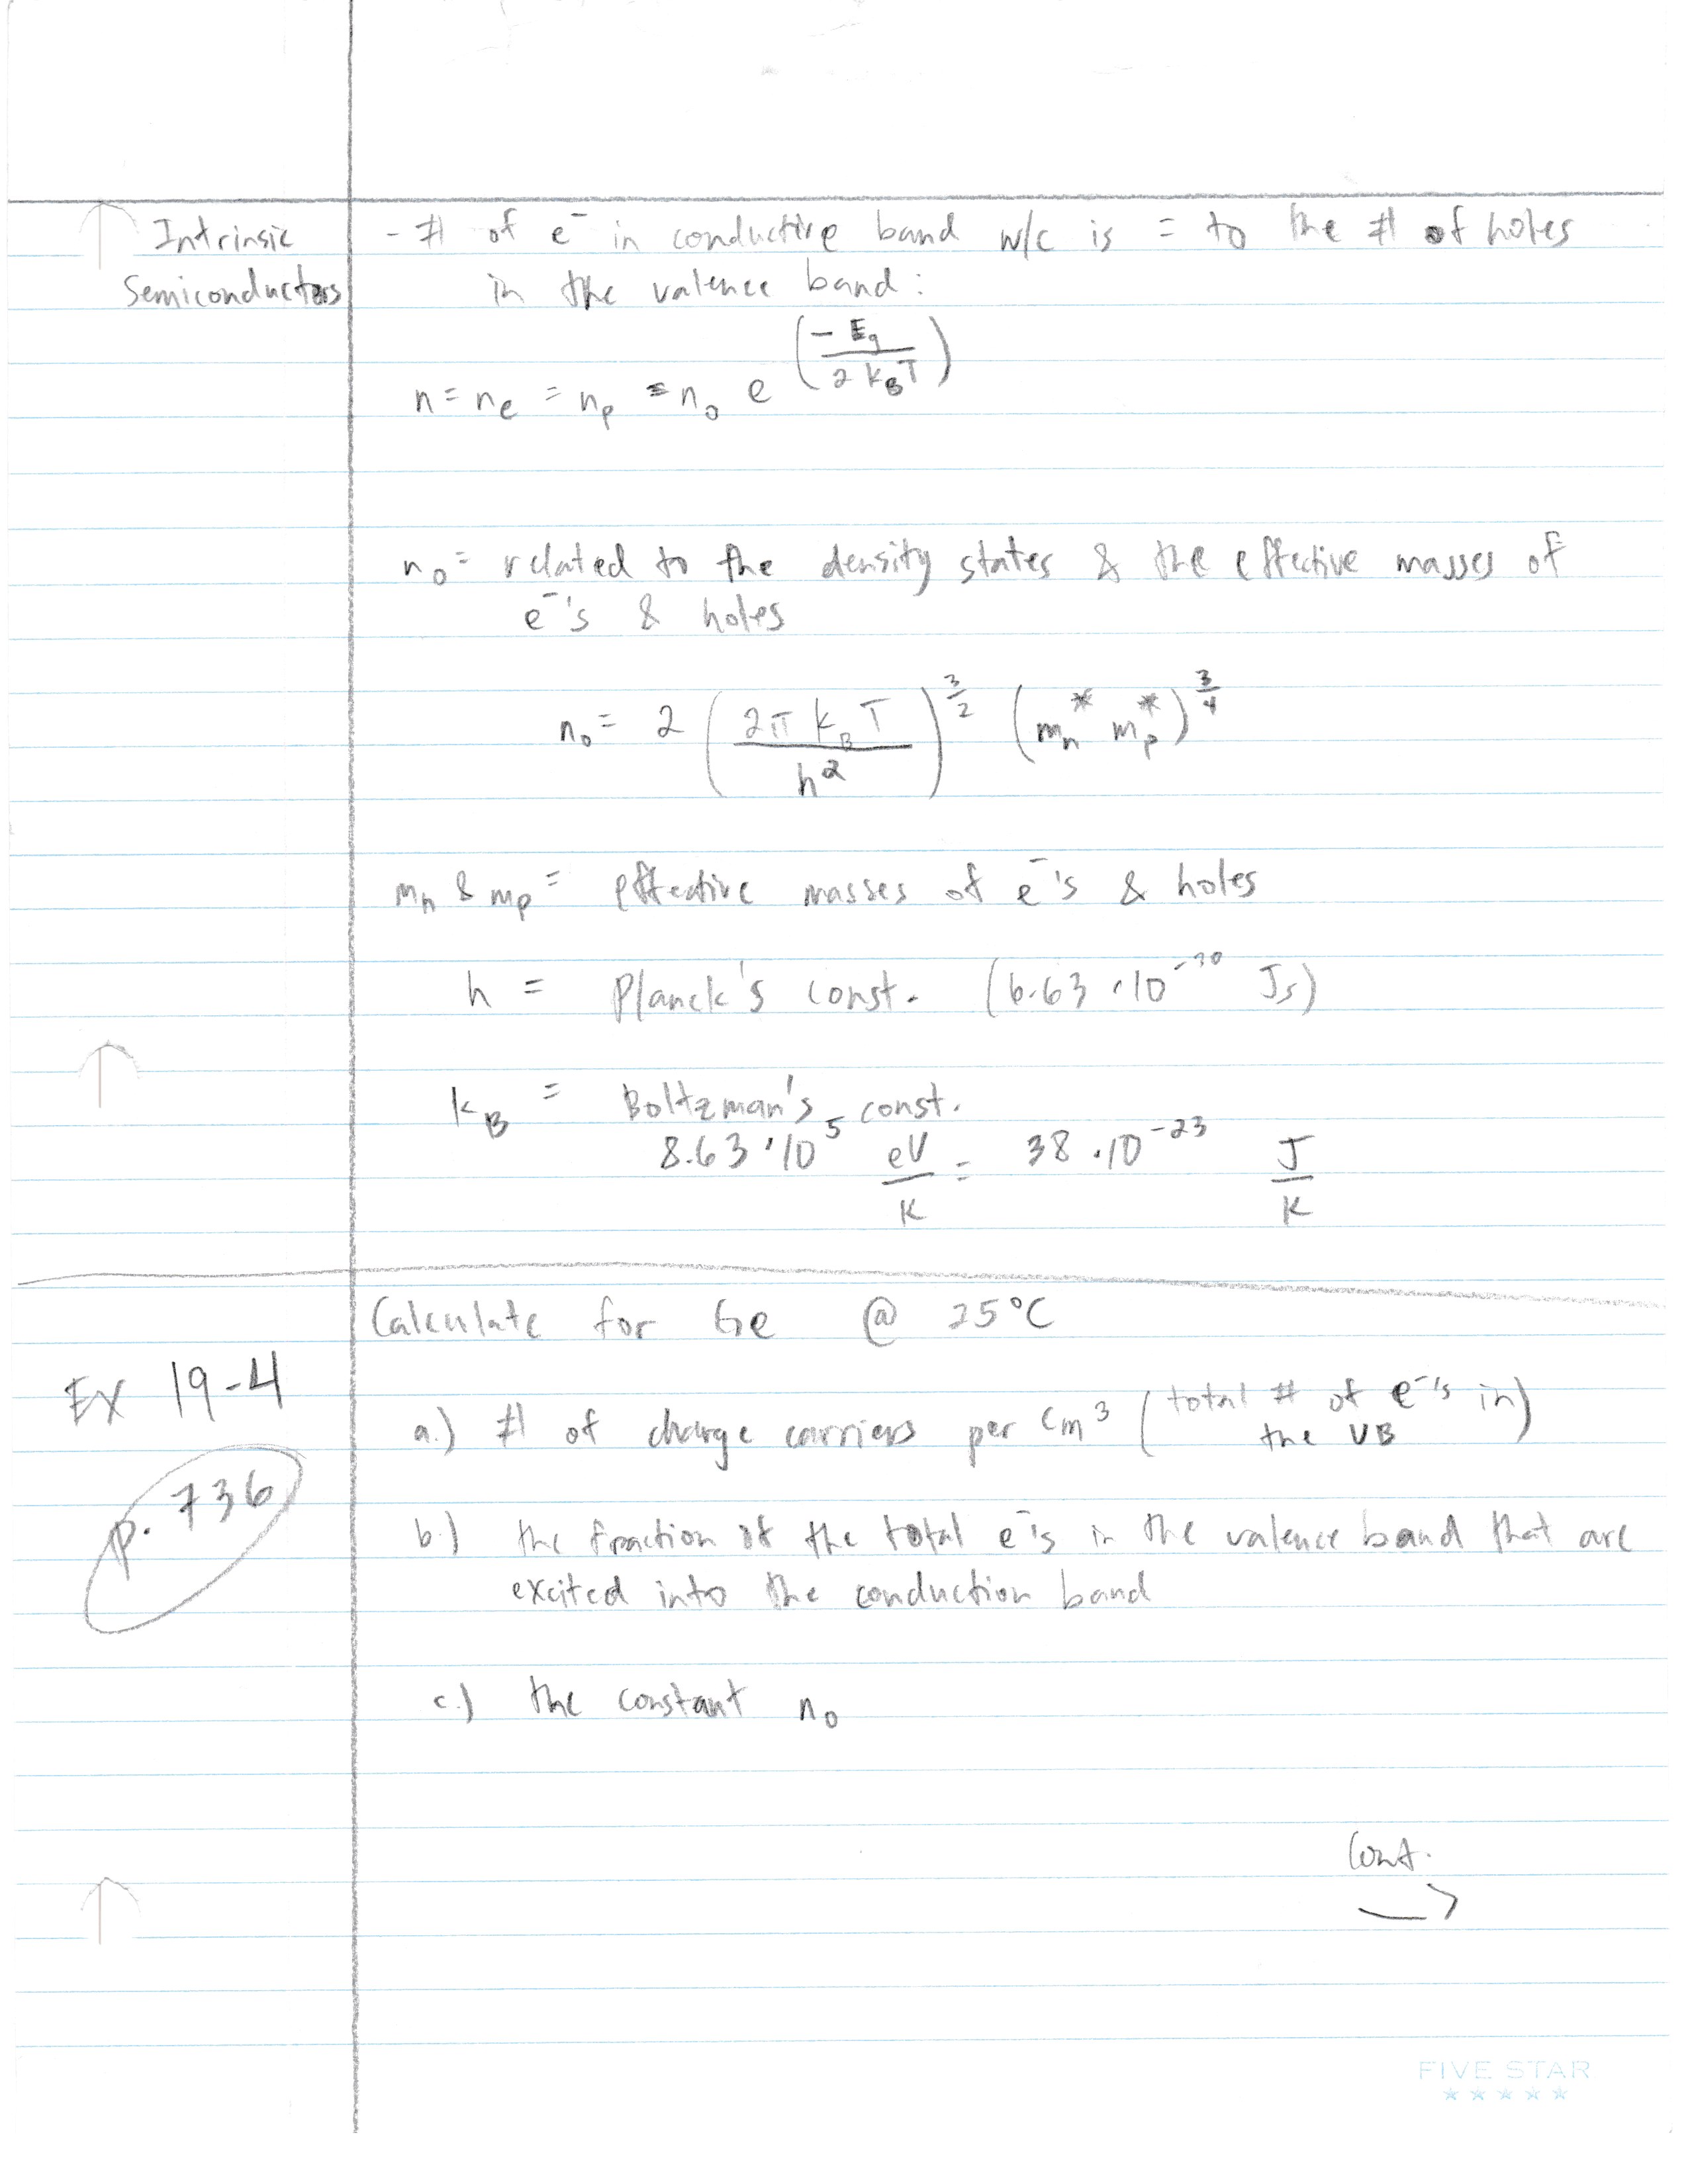 Intrinsic
Semiconductors
- # of e⁻ in conductive band w/c is = to the # of holes
in the valence band:
n = nₑ = nₚ = n₀ e^(-Eg / 2 k_B T)
n₀ = related to the density states & the effective masses of
e⁻'s & holes
n₀ = 2 (2π k_B T / h²)^(3/2) (mₙ* mₚ*)^(3/4)
mₙ & mₚ = effective masses of e⁻'s & holes
h = Planck's const. (6.63 · 10⁻³⁰ Js)
k_B = Boltzman's const.
8.63 · 10⁵ eV/K = 38 · 10⁻²³ J/K
Calculate for Ge @ 25°C
EX 19-4
p. 736
a.) # of charge carriers per cm³ (total # of e⁻'s in the VB)
b.) the fraction of the total e⁻'s in the valence band that are
excited into the conduction band
c.) the constant n₀
Cont.
→
FIVE STAR
★★★★★